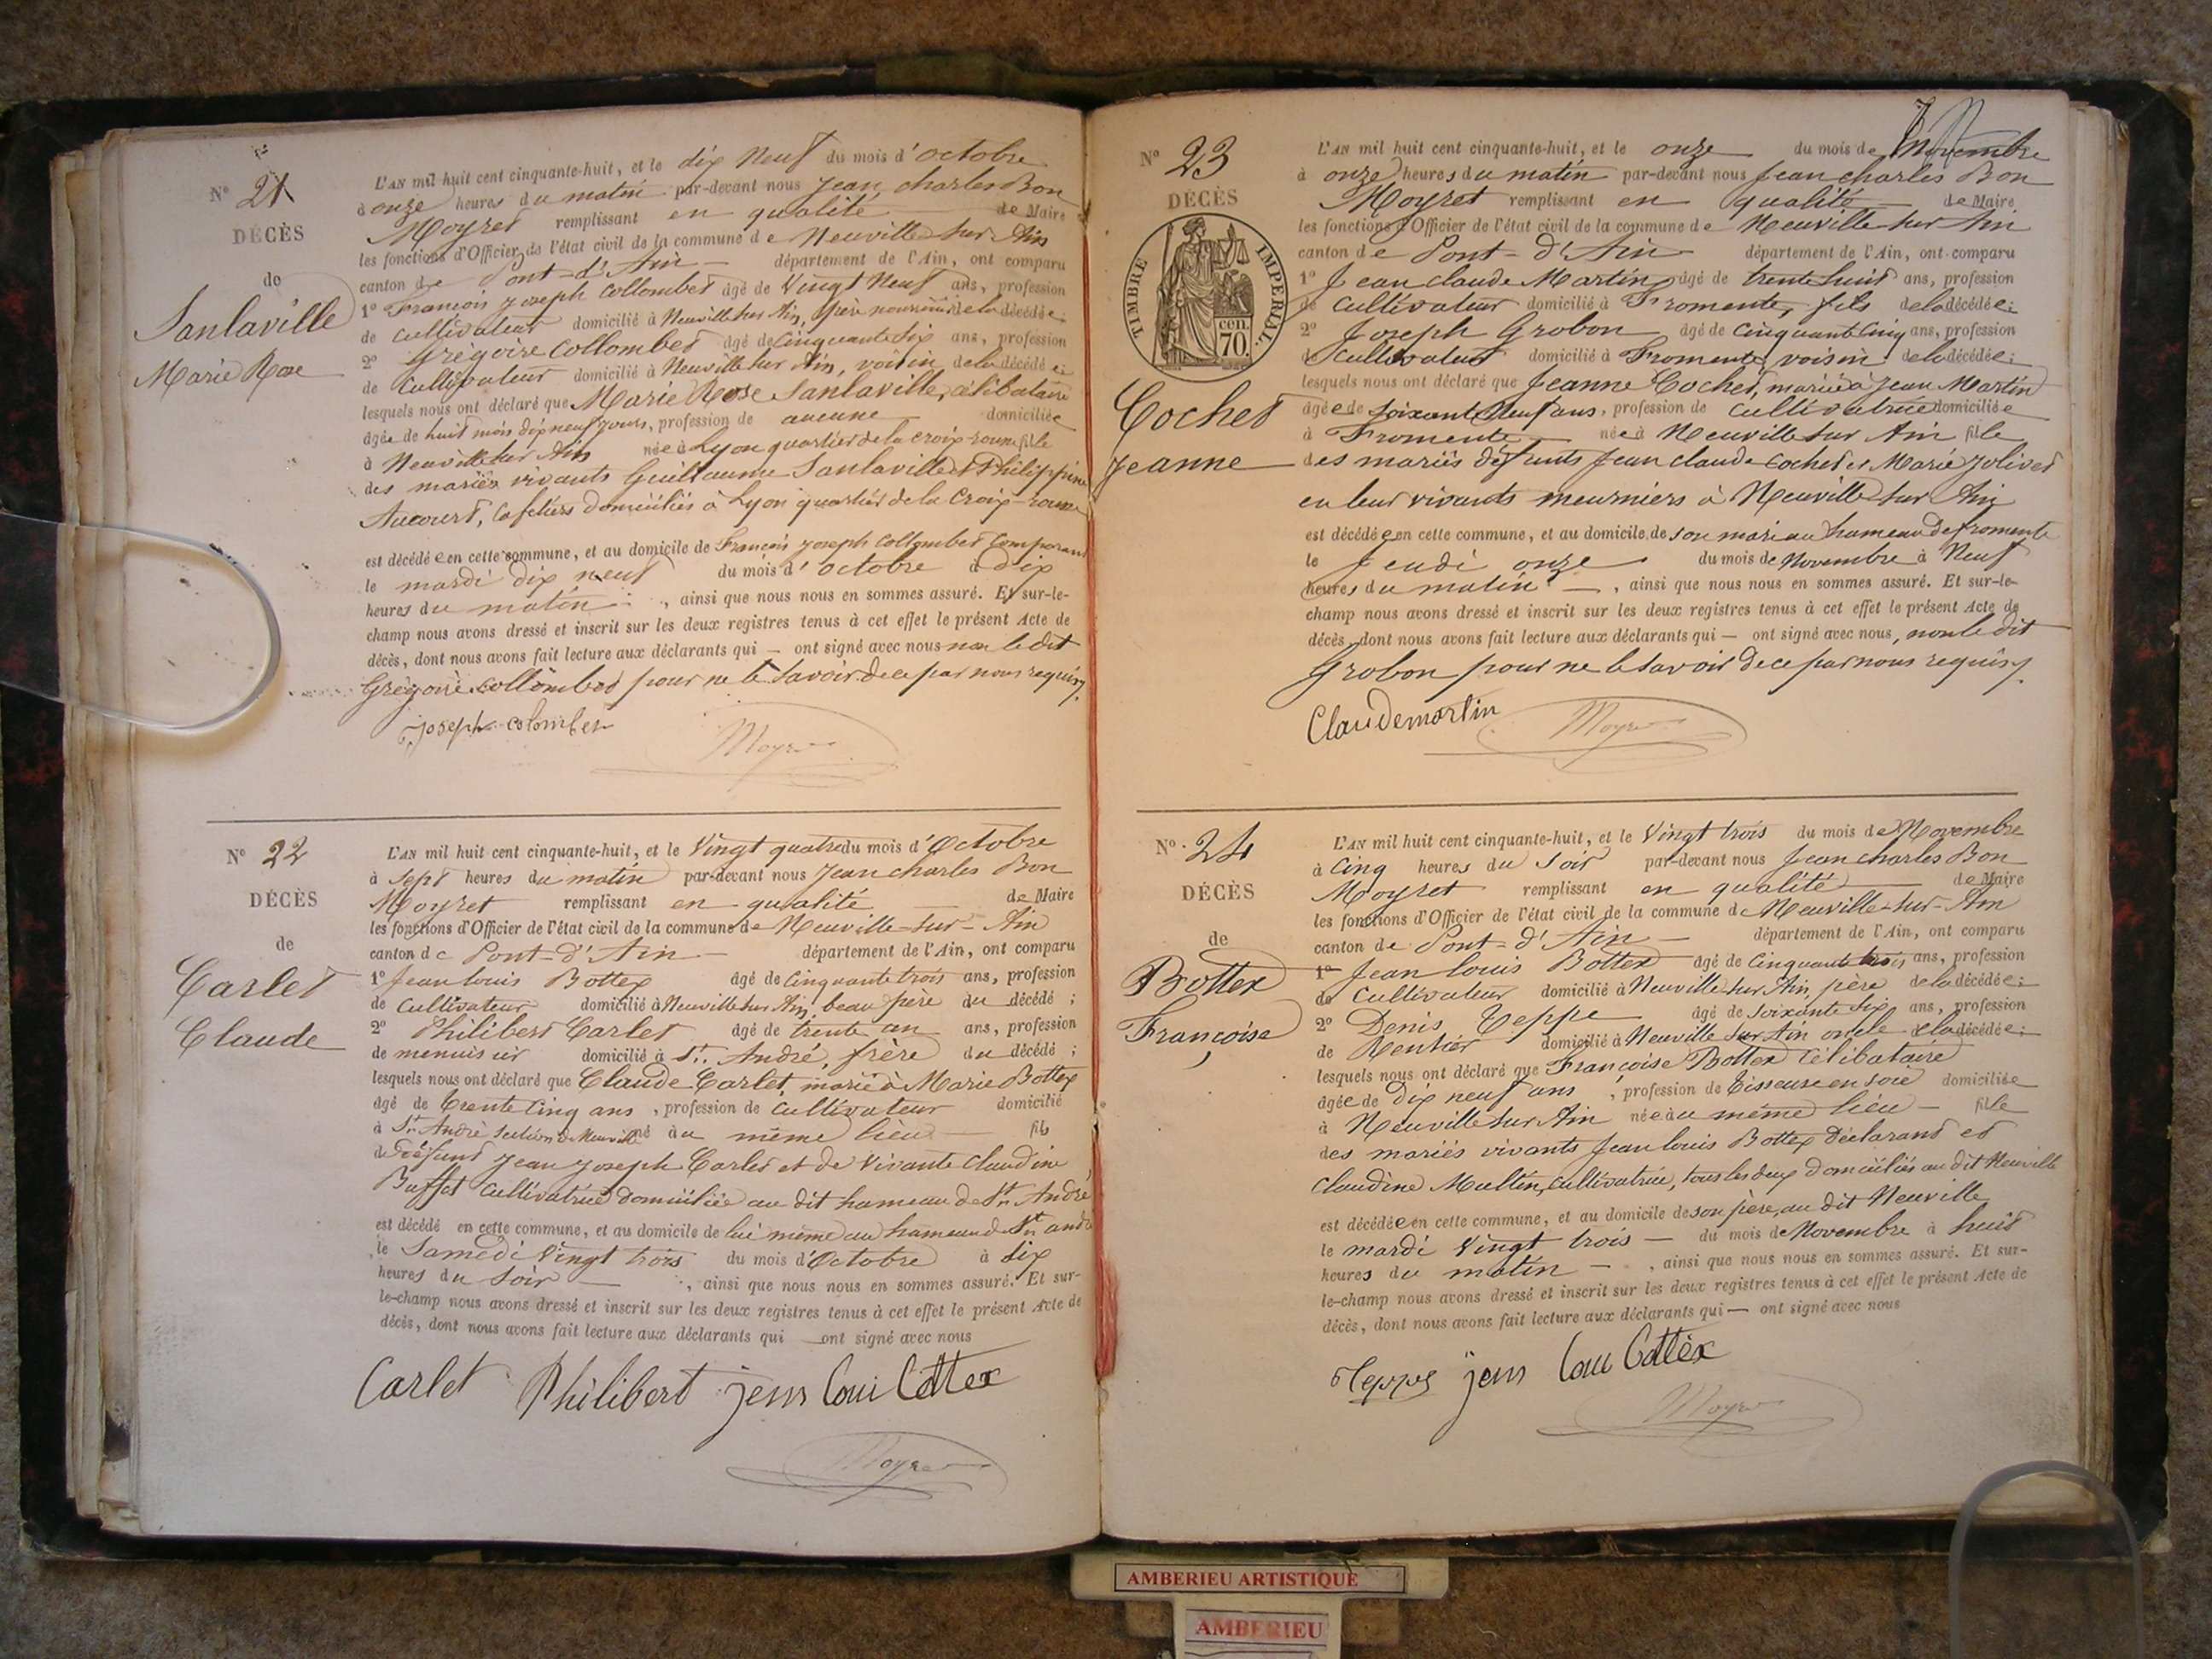 N° 21
DÉCÈS
de
Sanlaville
Marie Rose
L'AN mil huit cent cinquante-huit, et le dix Neuf du mois d'octobre
à onze heures du matin par-devant nous Jean charles Bon
Moyret remplissant en qualité de Maire
les fonctions d'Officier de l'état civil de la commune de Neuville sur Ain
canton de Pont-d'Ain département de l'Ain, ont comparu
1° François Joseph Collombet âgé de Vingt Neuf ans, profession
de cultivateur domicilié à Neuville sur Ain, père nourricier de la décédée;
2° Grégoire Collombet âgé de cinquante six ans, profession
de Cultivateur domicilié à Neuville sur Ain, voisin de la décédée
lesquels nous ont déclaré que Marie Rose Sanlaville, célibataire
âgée de huit mois dix neuf jours, profession de aucune domiciliée
à Neuville sur Ain née à Lyon quartier de la croix-rousse fille
des mariés vivants Guillaume Sanlaville et Philippine
Aucourt, cafetiers domiciliés à Lyon quartier de la Croix-rousse
est décédée en cette commune, et au domicile de François Joseph Collombet Comparant
le mardi dix neuf du mois d'octobre à dix
heures du matin, ainsi que nous nous en sommes assuré. Et sur-le-
champ nous avons dressé et inscrit sur les deux registres tenus à cet effet le présent Acte de
décès, dont nous avons fait lecture aux déclarants qui — ont signé avec nous non le dit
Grégoire Collombet pour ne le savoir de ce par nous requis.
joseph colombet
Moyret
N° 22
DÉCÈS
de
Carlet
Claude
L'AN mil huit cent cinquante-huit, et le Vingt quatre du mois d'Octobre
à sept heures du matin par-devant nous Jean charles Bon
Moyret remplissant en qualité de Maire
les fonctions d'Officier de l'état civil de la commune de Neuville-sur-Ain
canton de Pont-d'Ain — département de l'Ain, ont comparu
1° Jean louis Bottex âgé de Cinquante trois ans, profession
de Cultivateur domicilié à Neuville sur Ain, beau père du décédé;
2° Philibert Carlet âgé de trente un ans, profession
de menuisier domicilié à St. André, frère du décédé;
lesquels nous ont déclaré que Claude Carlet, marié à Marie Bottex
âgé de trente Cinq ans, profession de cultivateur domicilié
à St. André section de Neuville né au même lieu — fils
de défunt Jean Joseph Carlet et de Vivante Claudine
Buffet Cultivatrice domiciliée au dit hameau de St. André
est décédé en cette commune, et au domicile de lui même au hameau de St. andré
le Samedi Vingt trois du mois d'Octobre à dix
heures du Soir —, ainsi que nous nous en sommes assuré. Et sur-
le-champ nous avons dressé et inscrit sur les deux registres tenus à cet effet le présent Acte de
décès, dont nous avons fait lecture aux déclarants qui — ont signé avec nous
Carlet Philibert jean loui bottex
Moyret
N° 23
DÉCÈS
TIMBRE IMPERIAL.
cen. 70.
Cochet
Jeanne
L'AN mil huit cent cinquante-huit, et le onze du mois de Novembre
à onze heures du matin par-devant nous Jean charles Bon
Moyret remplissant en qualité de Maire
les fonctions d'Officier de l'état civil de la commune de Neuville sur Ain
canton de Pont-d'Ain département de l'Ain, ont comparu
1° Jean claude Martin âgé de trente huit ans, profession
de Cultivateur domicilié à Fromente, fils de la décédée;
2° Joseph Grobon âgé de Cinquante Cinq ans, profession
de Cultivateur domicilié à Fromente, voisin de la décédée;
lesquels nous ont déclaré que Jeanne Cochet, mariée à Jean Martin
âgée de soixante Neuf ans, profession de Cultivatrice domiciliée
à Fromente, née à Neuville sur Ain fille
des mariés défunts Jean claude Cochet et Marie Jolivet
en leur vivants meuniers à Neuville sur Ain
est décédée en cette commune, et au domicile de son mari au hameau de fromente
le Jeudi onze du mois de Novembre à Neuf
heures du matin —, ainsi que nous nous en sommes assuré. Et sur-le-
champ nous avons dressé et inscrit sur les deux registres tenus à cet effet le présent Acte de
décès, dont nous avons fait lecture aux déclarants qui — ont signé avec nous, non le dit
Grobon pour ne le savoir de ce par nous requis.
Claude martin
Moyret
N° 24
DÉCÈS
de
Bottex
Françoise
L'AN mil huit cent cinquante-huit, et le Vingt trois du mois de Novembre
à Cinq heures du Soir par-devant nous Jean charles Bon
Moyret remplissant en qualité de Maire
les fonctions d'Officier de l'état civil de la commune de Neuville-sur-Ain
canton de Pont-d'Ain — département de l'Ain, ont comparu
1° Jean louis Bottex âgé de Cinquante trois ans, profession
de Cultivateur domicilié à Neuville sur Ain père de la décédée;
2° Denis Teppe âgé de soixante six ans, profession
de Rentier domicilié à Neuville sur Ain oncle de la décédée;
lesquels nous ont déclaré que Françoise Bottex Célibataire
âgée de Dix neuf ans, profession de Tisseuse en soie domiciliée
à Neuville sur Ain née au même lieu — fille
des mariés vivants Jean louis Bottex Déclarant et
Claudine Mullin, cultivatrice, tous les deux domiciliés au dit Neuville
est décédée en cette commune, et au domicile de son père, au dit Neuville
le mardi Vingt trois — du mois de Novembre à huit
heures du matin —, ainsi que nous nous en sommes assuré. Et sur-
le-champ nous avons dressé et inscrit sur les deux registres tenus à cet effet le présent Acte de
décès, dont nous avons fait lecture aux déclarants qui — ont signé avec nous
Teppe jean loui bottex
Moyret
AMBERIEU ARTISTIQUE
AMBERIEU